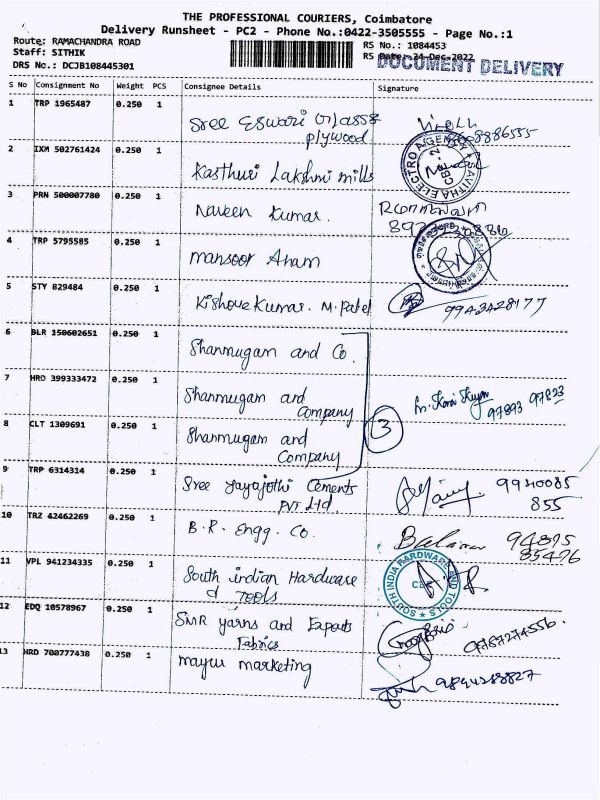 THE PROFESSIONAL COURIERS, Coimbatore
Delivery Runsheet - PC2 - Phone No.:0422-3505555 - Page No.:1
Route: RAMACHANDRA ROAD
Staff: SITHIK
DRS No.: DCJB108445301
RS No.: 1084453
RS Date: 24-Dec-2022
DOCUMENT DELIVERY
S No Consignment No Weight PCS Consignee Details Signature
1 TRP 1965487 0.250 1 Sree Eswari Glasss
plywood
8886555
2 IXM 502761424 0.250 1 Kasthuri Lakshmi mills
SAVITHA ELECTRO AGENCY
CBE - 2
3 PRN 500007780 0.250 1 Naveen Kumar.
4 TRP 5795585 0.250 1 mansoor Aham
5 STY 829484 0.250 1 Kishore Kumar. M. Patel
9943428177
6 BLR 150602651 0.250 1 Shanmugam and Co.
7 HRD 399333472 0.250 1 Shanmugam and
Company
97893 97823
8 CLT 1309691 0.250 1 Shanmugam and
Company
3
9 TRP 6314314 0.250 1 Sree Jayajothi Cements
PVT Ltd.
9940085
855
10 TRZ 42462269 0.250 1 B.R. Engg. Co.
94875
85476
11 VPL 941234335 0.250 1 South indian Hardware
& Tools
SOUTH INDIA HARDWARE AND TOOLS
12 EDQ 10578967 0.250 1 SMR yarns and Exports
Fabrics
9787274556.
13 HRD 700777438 0.250 1 mayur marketing
9894288827